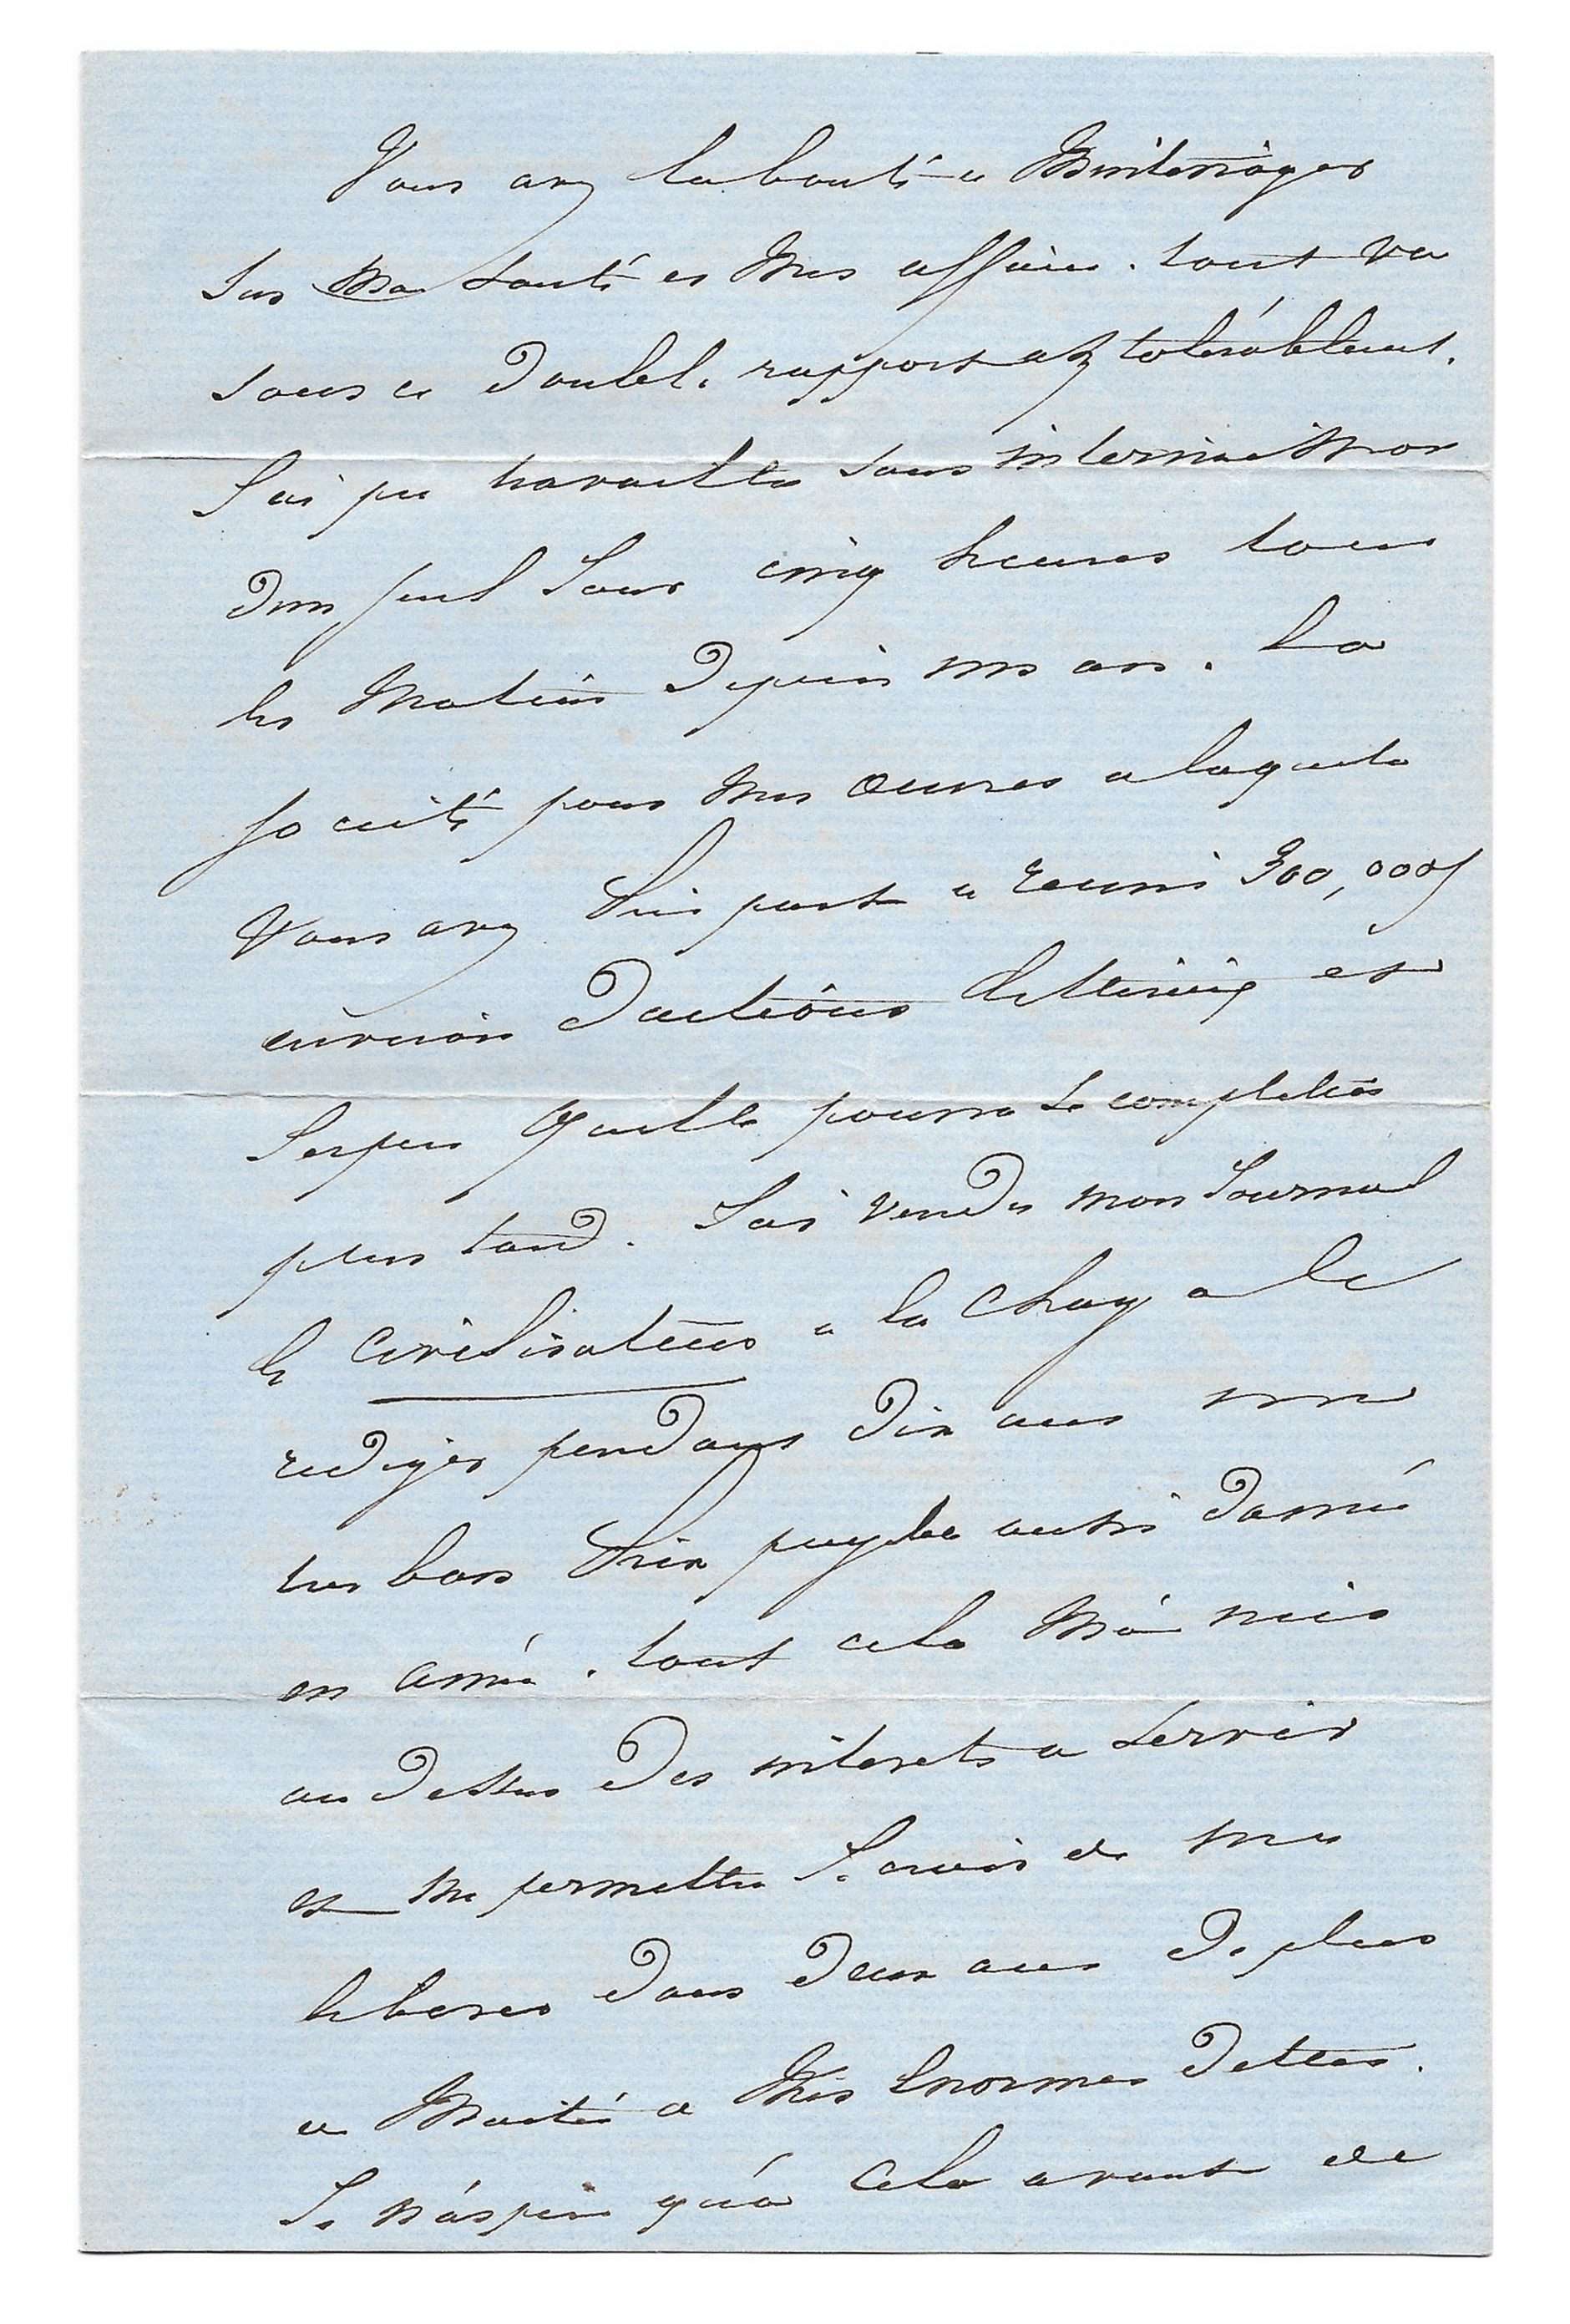 Vous avez la bonté de m'interroger
sur ma santé et mes affaires. tout va
sous ce double rapport assez tolérablement.
J'ai pu travailler sans intermission
d'un seul jour cinq heures tous
les matins depuis un an. La
société pour mes œuvres a laquelle
vous avez pris part a réuni 300,000f
environ d'actions et
J'espère quelle pourra se completer
plus tard. J'ai vendu mon Journal
le Civilisateur a la charge de le
rediger pendant dix ans un
tres bon prix payable aussi d'année
en année. tout cela m'a mis
au dessus des interets a servir
et me permettra Je crois de me
liberer dans deux ans de plus
de moitié de mes Enormes dettes.
Je n'aspire qu'à cela avant de